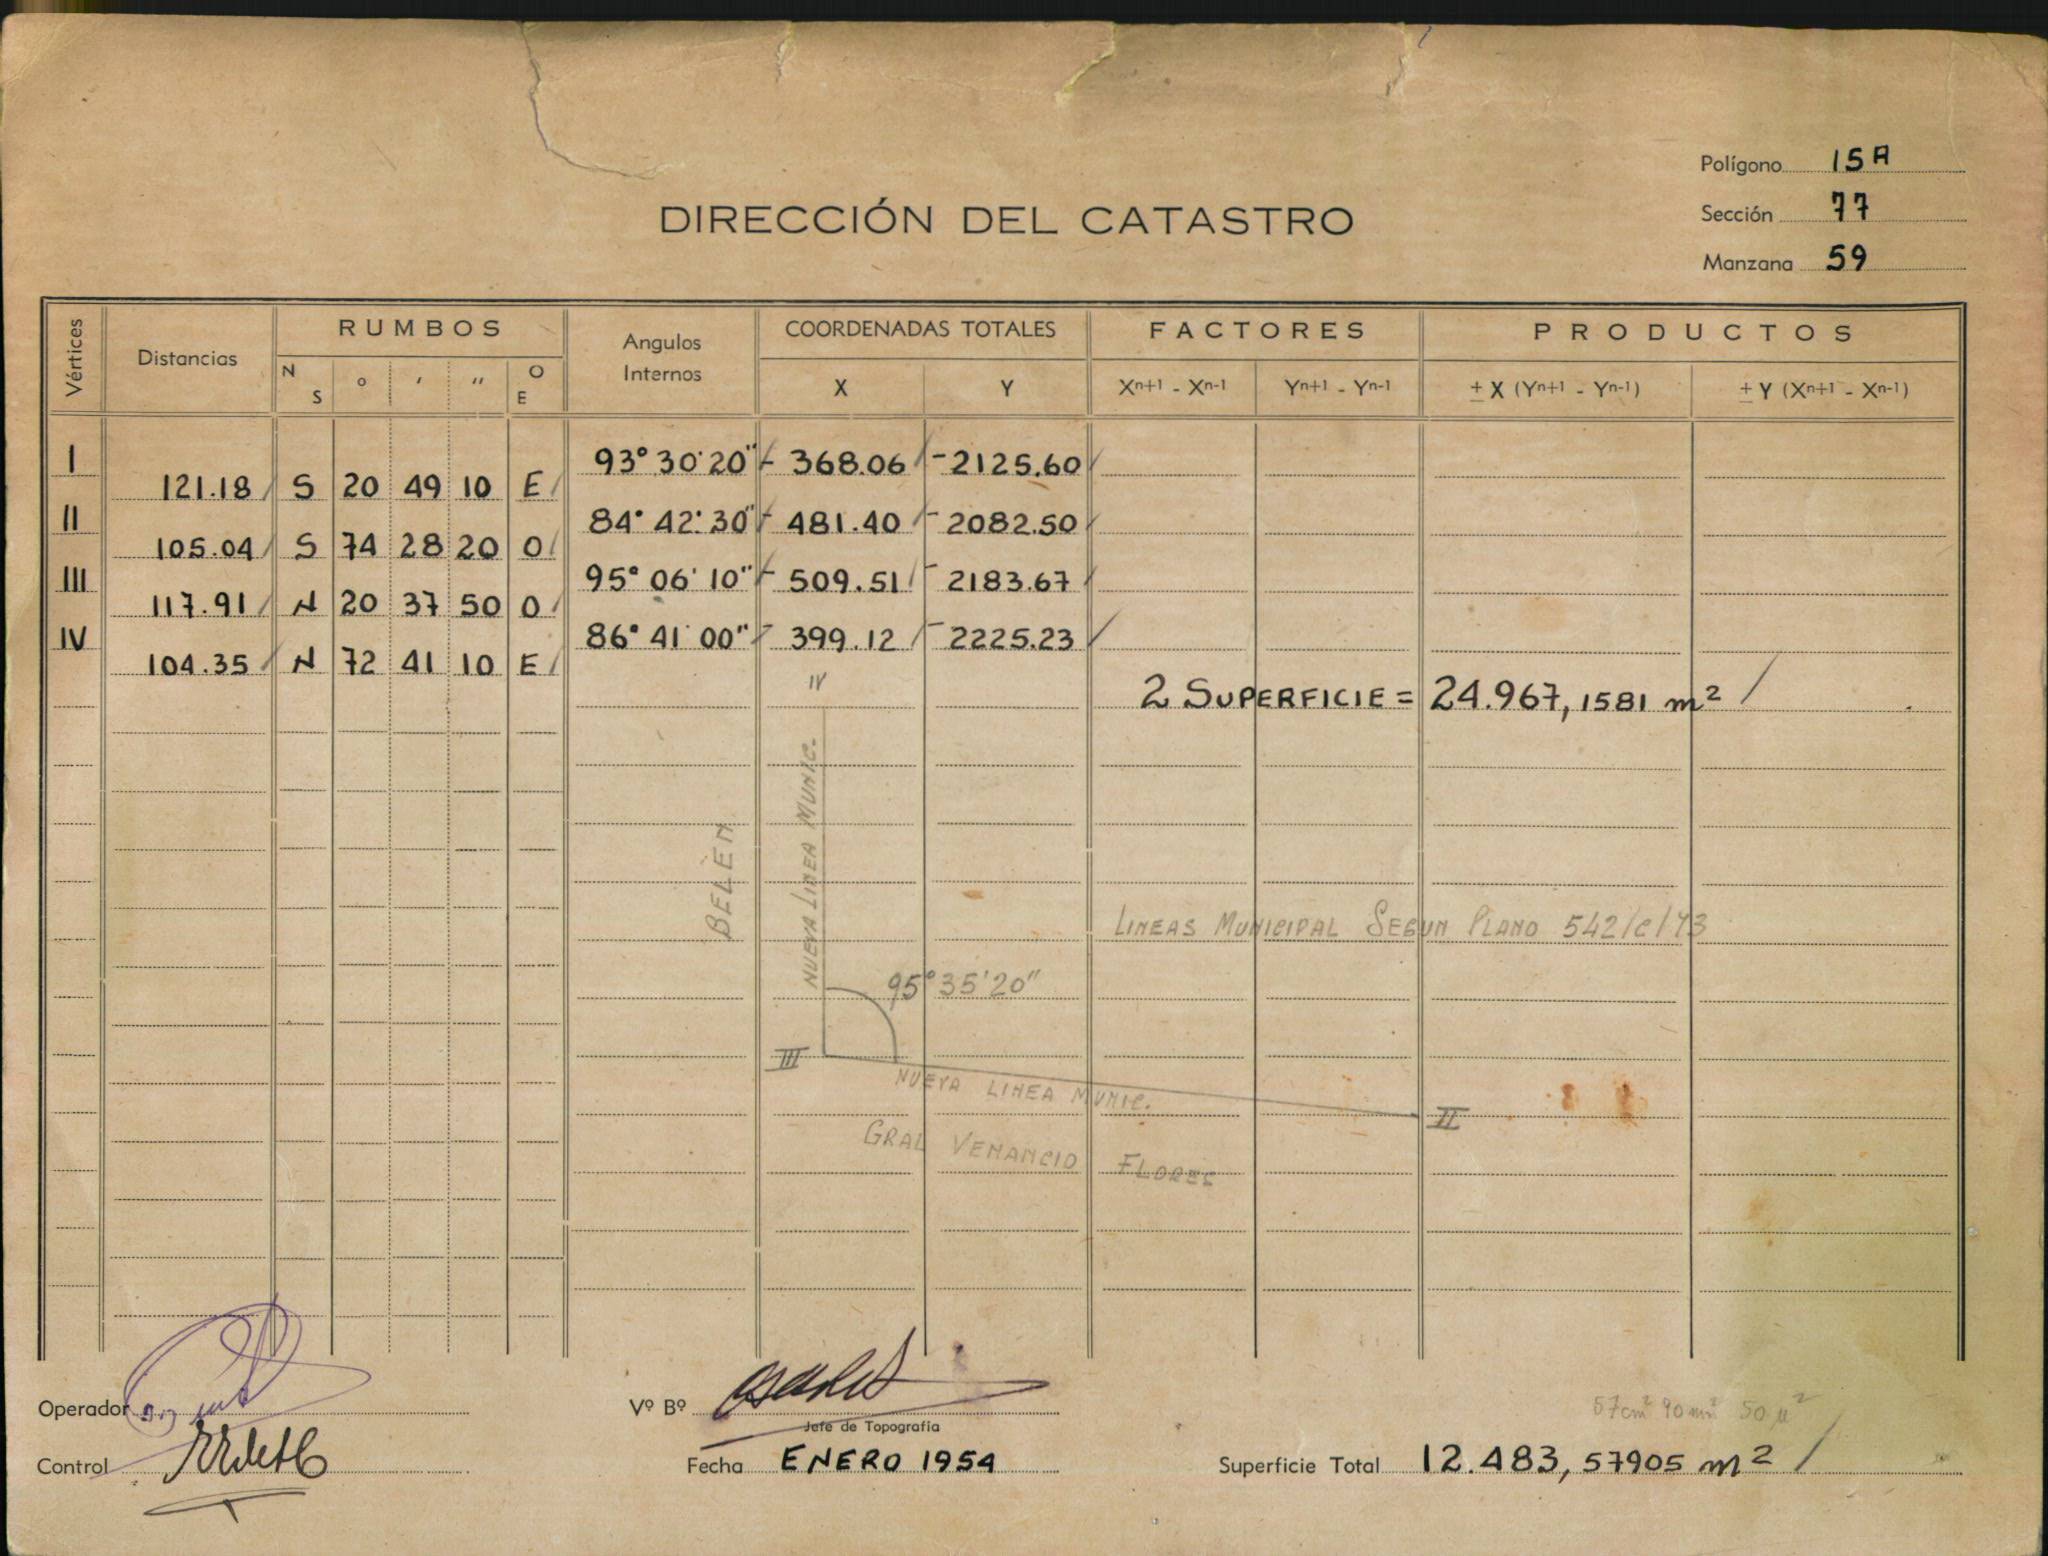 Polígono 15A
Sección 77
Manzana 59
DIRECCIÓN DEL CATASTRO
Vértices Distancias RUMBOS Angulos Internos COORDENADAS TOTALES FACTORES PRODUCTOS
N S ° ' '' O E X Y Xn+1 - Xn-1 Yn+1 - Yn-1 ± X (Yn+1 - Yn-1) ± Y (Xn+1 - Xn-1)
I 93° 30' 20" - 368.06 - 2125.60
121.18 S 20 49 10 E
II 84° 42' 30" - 481.40 - 2082.50
105.04 S 74 28 20 O
III 95° 06' 10" - 509.51 - 2183.67
117.91 N 20 37 50 O
IV 86° 41' 00" - 399.12 - 2225.23
104.35 N 72 41 10 E
2 SUPERFICIE = 24.967,1581 m²
IV
NUEVA LINEA MUNIC.
BELEN
LINEAS MUNICIPAL SEGUN PLANO 542/C/73
95° 35' 20"
III
NUEVA LINEA MUNIC.
II
GRAL VENANCIO FLORES
57cm² 90mm² 50 µ²
Operador
Vº Bº
Jefe de Topografía
Control
Fecha ENERO 1954
Superficie Total 12.483,57905 m²